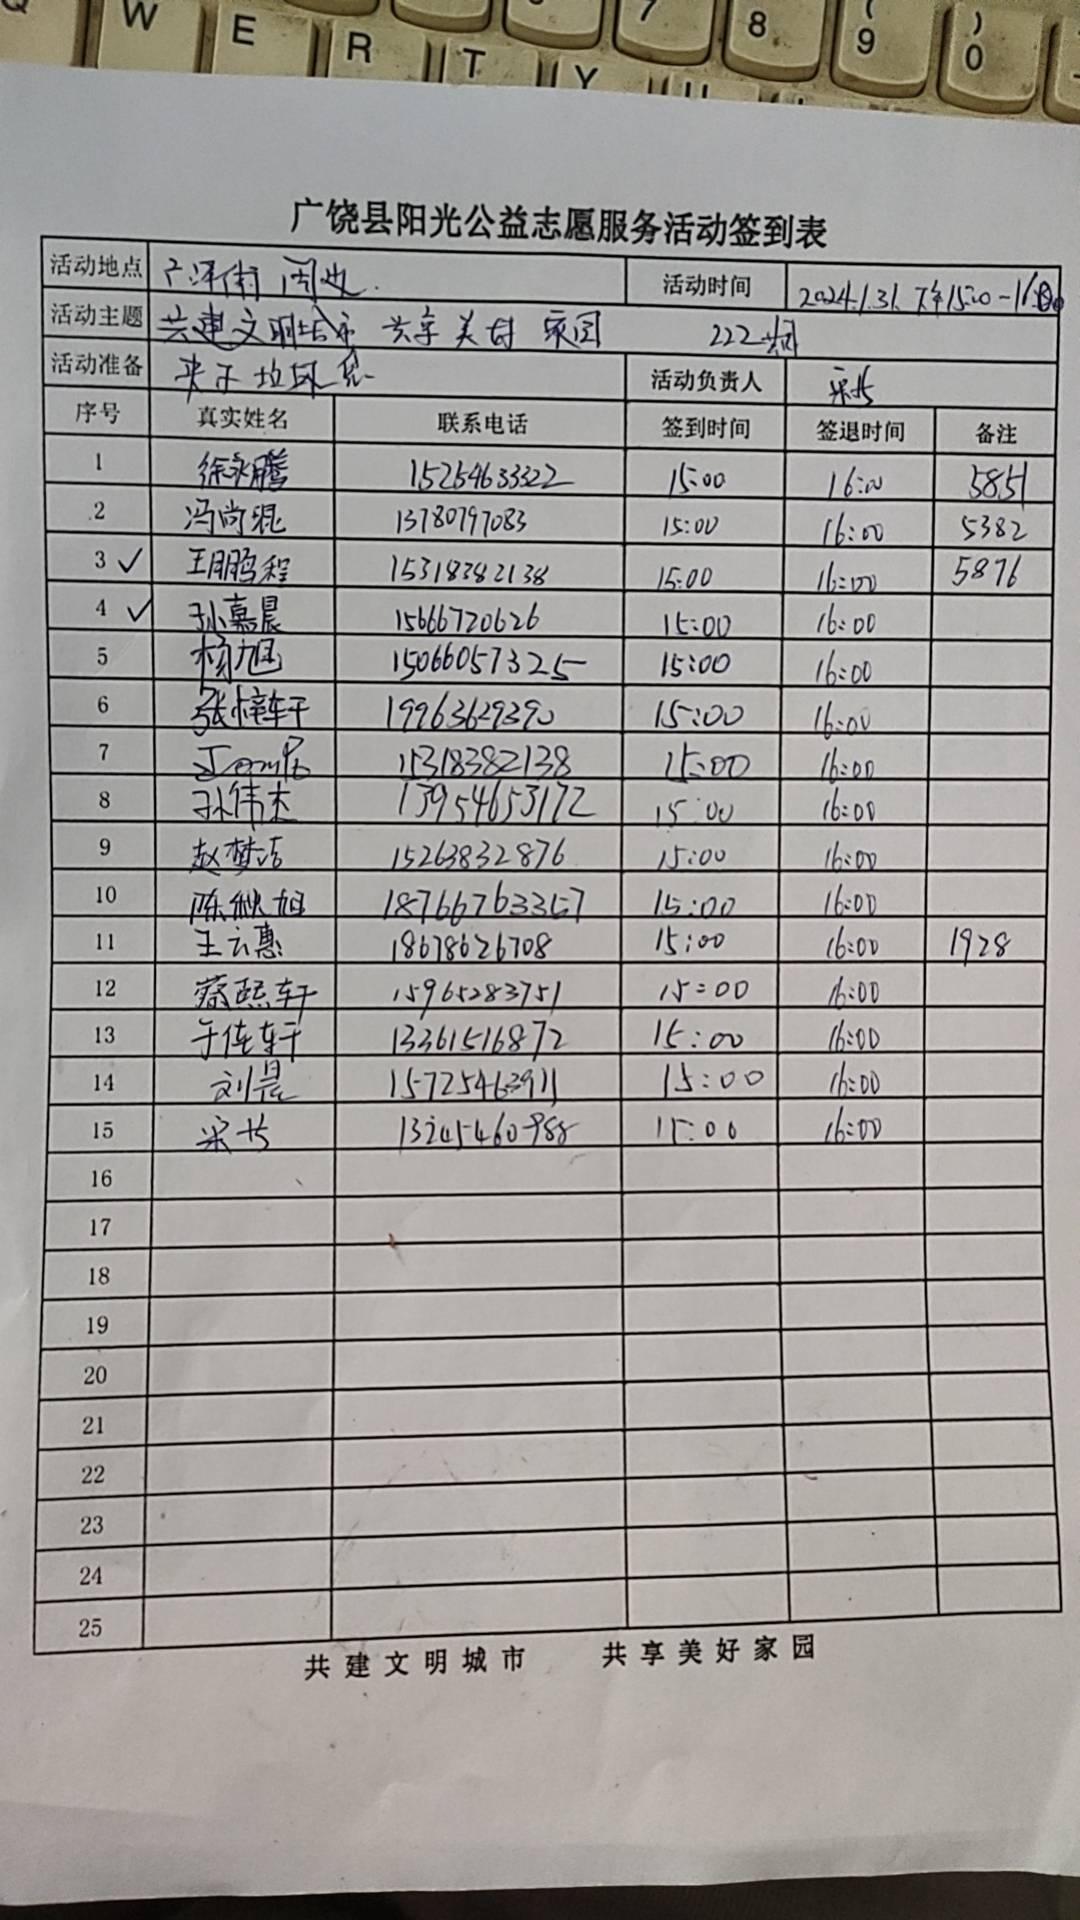 Q W E R T Y U 7 8 ( 9 ) 0
广饶县阳光公益志愿服务活动签到表
活动地点 周边 活动时间 2024.1.31. 下午15:00-16:00
活动主题 共建文明城市 共享美好家园 222期
活动准备 夹子 垃圾 活动负责人
序号 真实姓名 联系电话 签到时间 签退时间 备注
1 徐永腾 15254633322 15:00 16:00 5851
2 冯尚琨 13780797083 15:00 16:00 5382
3 ✓ 王鹏程 15318382138 15:00 16:00 5876
4 ✓ 孙嘉晨 15666720626 15:00 16:00
5 杨旭 15066057325 15:00 16:00
6 张梓轩 19963629390 15:00 16:00
7 15318382138 15:00 16:00
8 孙伟杰 13954653172 15:00 16:00
9 赵梦洁 15263832876 15:00 16:00
10 陈秋旭 18766763357 15:00 16:00
11 王云惠 18678626708 15:00 16:00 1928
12 蔡熙轩 15965283751 15:00 16:00
13 于佳轩 13361516872 15:00 16:00
14 刘晨 15725463911 15:00 16:00
15 13245460988 15:00 16:00
16
17
18
19
20
21
22
23
24
25
共建文明城市 共享美好家园